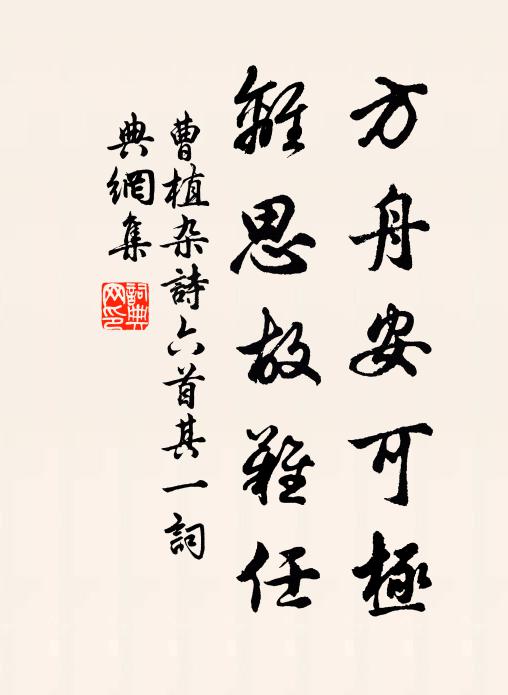 方舟安可極
離思故難任
曹植杂詩六首其一詞
典網集
詞典网印